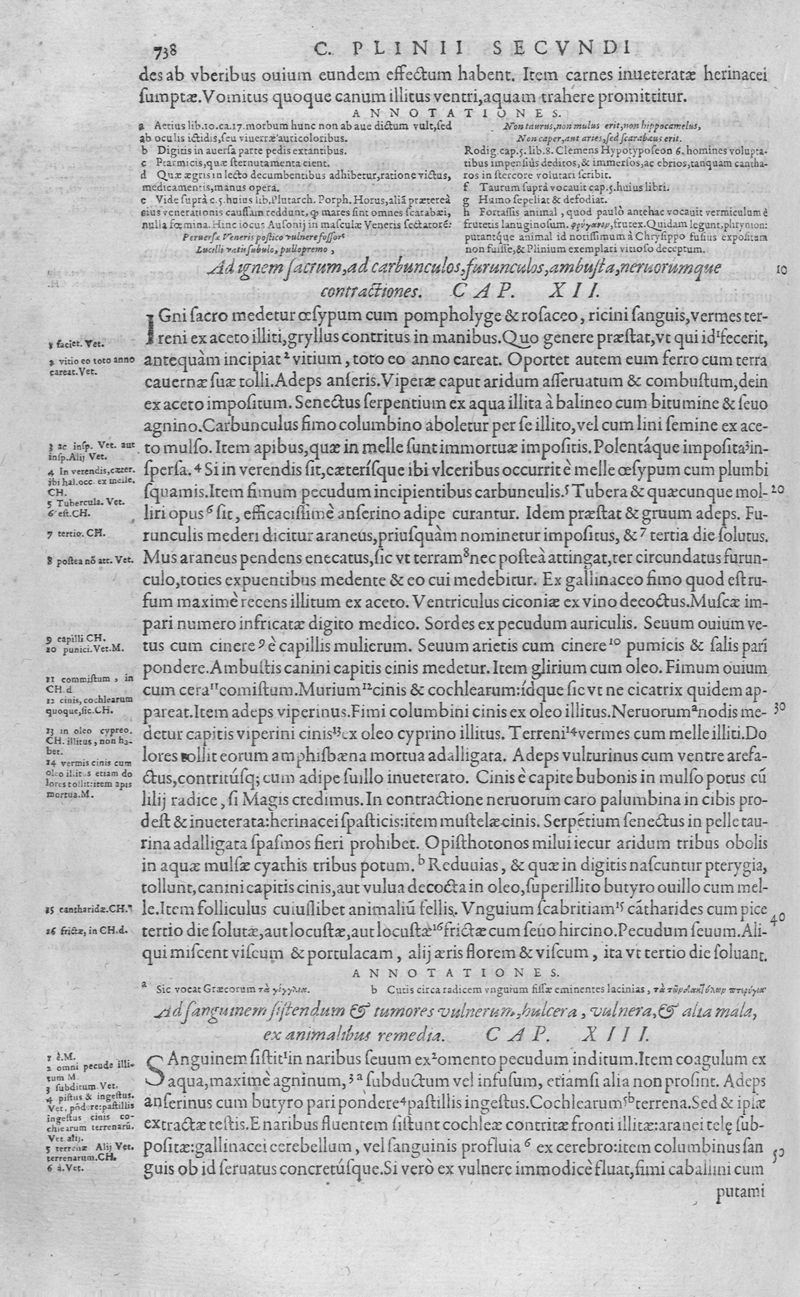 738
C. PLINII SECVNDI
des ab vberibus ouium eundem effectum habent. Item carnes inueteratæ herinacei
sumptæ. Vomitus quoque canum illitus ventri, aquam trahere promittitur.
ANNOTATIONES.
a Aetius lib.10.ca.17. morbum hunc non ab aue dictum vult, sed
ab oculis ictidis, seu viuerræ auricoloribus.
b Digitis in auersa parte pedis extantibus.
c Ptarmicis, quæ sternutamenta cient.
d Quæ ægris in lecto decumbentibus adhibetur, ratione victus,
medicamentis, manus opera.
e Vide suprà c.5. huius lib. Plutarch. Porph. Horus, aliã præterea
eius venerationis caussam reddunt, q̃ mares sint omnes scarabæi,
nulla fœmina. Hinc iocus Ausonij in masculæ Veneris sectatorẽ:
Peruersæ Veneris postico vulnere fossor
Lucilli vatis subulo, pullopremo,
Non taurus, non mulus erit, non hippocamelus,
Non caper, aut aries, sed scarabæus erit.
Rodig. cap.5. lib.8. Clemens Hypotyposeon 6. homines volupta-
tibus impensius deditos, & immersos, ac ebrios, tanquam cantha-
ros in stercore volutari scribit.
f Taurum suprà vocauit cap.5. huius libri.
g Humo sepeliat & defodiat.
h Fortassis animal, quod paulò antehac vocauit vermiculum è
frutetis lanuginosum. φρύγανον, frutex. Quidam legunt, phrynion:
putantque animal id notissimum à Chrysippo fusius expositum
non fuisse, & Plinium exemplari vitioso deceptum.
Ad ignem sacrum, ad carbunculos, furunculos, ambusta, neruorumque 10
contractiones. CAP. XII.
IGni sacro medetur œsypum cum pompholyge & rosaceo, ricini sanguis, vermes ter-
reni ex aceto illiti, gryllus contritus in manibus. Quo genere præstat, vt qui id¹ fecerit,
1 faciet. Vet.
antequàm incipiat² vitium, toto eo anno careat. Oportet autem eum ferro cum terra
2 vitio eo toto anno
careat. Vet.
cauernæ suæ tolli. Adeps anseris. Viperæ caput aridum asseruatum & combustum, dein
ex aceto impositum. Senectus serpentium ex aqua illita à balineo cum bitumine & seuo
agnino. Carbunculus fimo columbino aboletur per se illito, vel cum lini semine ex ace-
to mulso. Item apibus, quæ in melle sunt immortuæ impositis. Polentáque imposita³ in-
3 ac insp. Vet. aut
insp. Alij Vet.
spersa. ⁴ Si in verendis sit, cæterisque ibi vlceribus occurrit è melle œsypum cum plumbi
4 In verendis, cæter.
ibi hal. occ. ex melle.
CH.
squamis. Item fimum pecudum incipientibus carbunculis. ⁵ Tubera & quæcunque mol- 20
5 Tubercula. Vet.
liri opus ⁶ sit, efficacissimè anserino adipe curantur. Idem præstat & gruum adeps. Fu-
6 est. CH.
runculis mederi dicitur araneus, priusquàm nominetur impositus, & ⁷ tertia die solutus.
7 tertio. CH.
Mus araneus pendens enecatus, sic vt terram⁸ nec posteà attingat, ter circundatus furun-
8 postea nõ att. Vet.
culo, toties expuentibus medente & eo cui medebitur. Ex gallinaceo fimo quod est ru-
fum maximè recens illitum ex aceto. Ventriculus ciconiæ ex vino decoctus. Muscæ im-
pari numero infricatæ digito medico. Sordes ex pecudum auriculis. Seuum ouium ve-
tus cum cinere ⁹ è capillis mulierum. Seuum arietis cum cinere ¹⁰ pumicis & salis pari
9 capilli CH.
10 punici. Vet. M.
pondere. Ambustis canini capitis cinis medetur. Item glirium cum oleo. Fimum ouium
cum cera¹¹ comistum. Murium¹² cinis & cochlearum: idque sic vt ne cicatrix quidem ap-
11 commistum, in
CH.d
12 cinis, cochlearum
quoque, sic. CH.
pareat. Item adeps viperinus. Fimi columbini cinis ex oleo illitus. Neruorumᵃ nodis me- 30
detur capitis viperini cinis¹³ ex oleo cyprino illitus. Terreni¹⁴ vermes cum melle illiti. Do
13 in oleo cypreo.
CH. illitus, non ha-
bet.
14 vermis cinis cum
oleo illitus etiam do
lores tollit: item apis
mortua. M.
lores tollit eorum amphisbæna mortua adalligata. Adeps vulturinus cum ventre arefa-
ctus, contritúsq; cum adipe suillo inueterato. Cinis è capite bubonis in mulso potus cũ
lilij radice, si Magis credimus. In contractione neruorum caro palumbina in cibis pro-
dest & inueterata: herinacei spasticis: item mustelæ cinis. Serpẽtium senectus in pelle tau-
rina adalligata spasmos fieri prohibet. Opisthotonos milui iecur aridum tribus obolis
in aquæ mulsæ cyathis tribus potum. ᵇ Reduuias, & quæ in digitis nascuntur pterygia,
tollunt, canini capitis cinis, aut vulua decocta in oleo, superillito butyro ouillo cum mel-
le. Item folliculus cuiuslibet animaliũ fellis. Vnguium scabritiam¹⁵ cãtharides cum pice
15 cantharidæ. CH.
tertio die solutæ, aut locustæ, aut locustæ¹⁶ frictæ cum seuo hircino. Pecudum seuum. Ali- 40
16 frictæ, in CH.d.
qui miscent viscum & portulacam, alij æris florem & viscum, ita vt tertio die soluant.
ANNOTATIONES.
a Sic vocat Græcorum τὰ γάγγλια. b Cutis circa radicem vnguium fissæ eminentes lacinias,
Ad sanguinem sistendum & tumores vulnerum, hulcera, vulnera, & alia mala,
ex animalibus remedia. CAP. XIII.
SAnguinem sistit¹ in naribus seuum ex² omento pecudum inditum. Item coagulum ex
1 è. M.
2 omni pecude illi-
tum M.
aqua, maximè agninum, ³ ᵃ subductum vel infusum, etiamsi alia non prosint. Adeps
3 subditum. Vet.
anserinus cum butyro pari pondere⁴ pastillis ingestus. Cochlearum⁵ᵇ terrena. Sed & ipsæ
4 pistus & ingestus.
Vet. põdere: pastillis
ingestus cinis co-
chlearum terrenarũ.
Vet. alij.
extractæ testis. E naribus fluentem sistunt cochleæ contritæ fronti illitæ: aranei telę sub-
5 terrenæ Alij Vet.
terrenarum. CH.
positæ: gallinacei cerebellum, vel sanguinis profluia ⁶ ex cerebro: item columbinus san 50
6 à. Vet.
guis ob id seruatus concretúsque. Si verò ex vulnere immodicè fluat, fimi caballini cum
putami